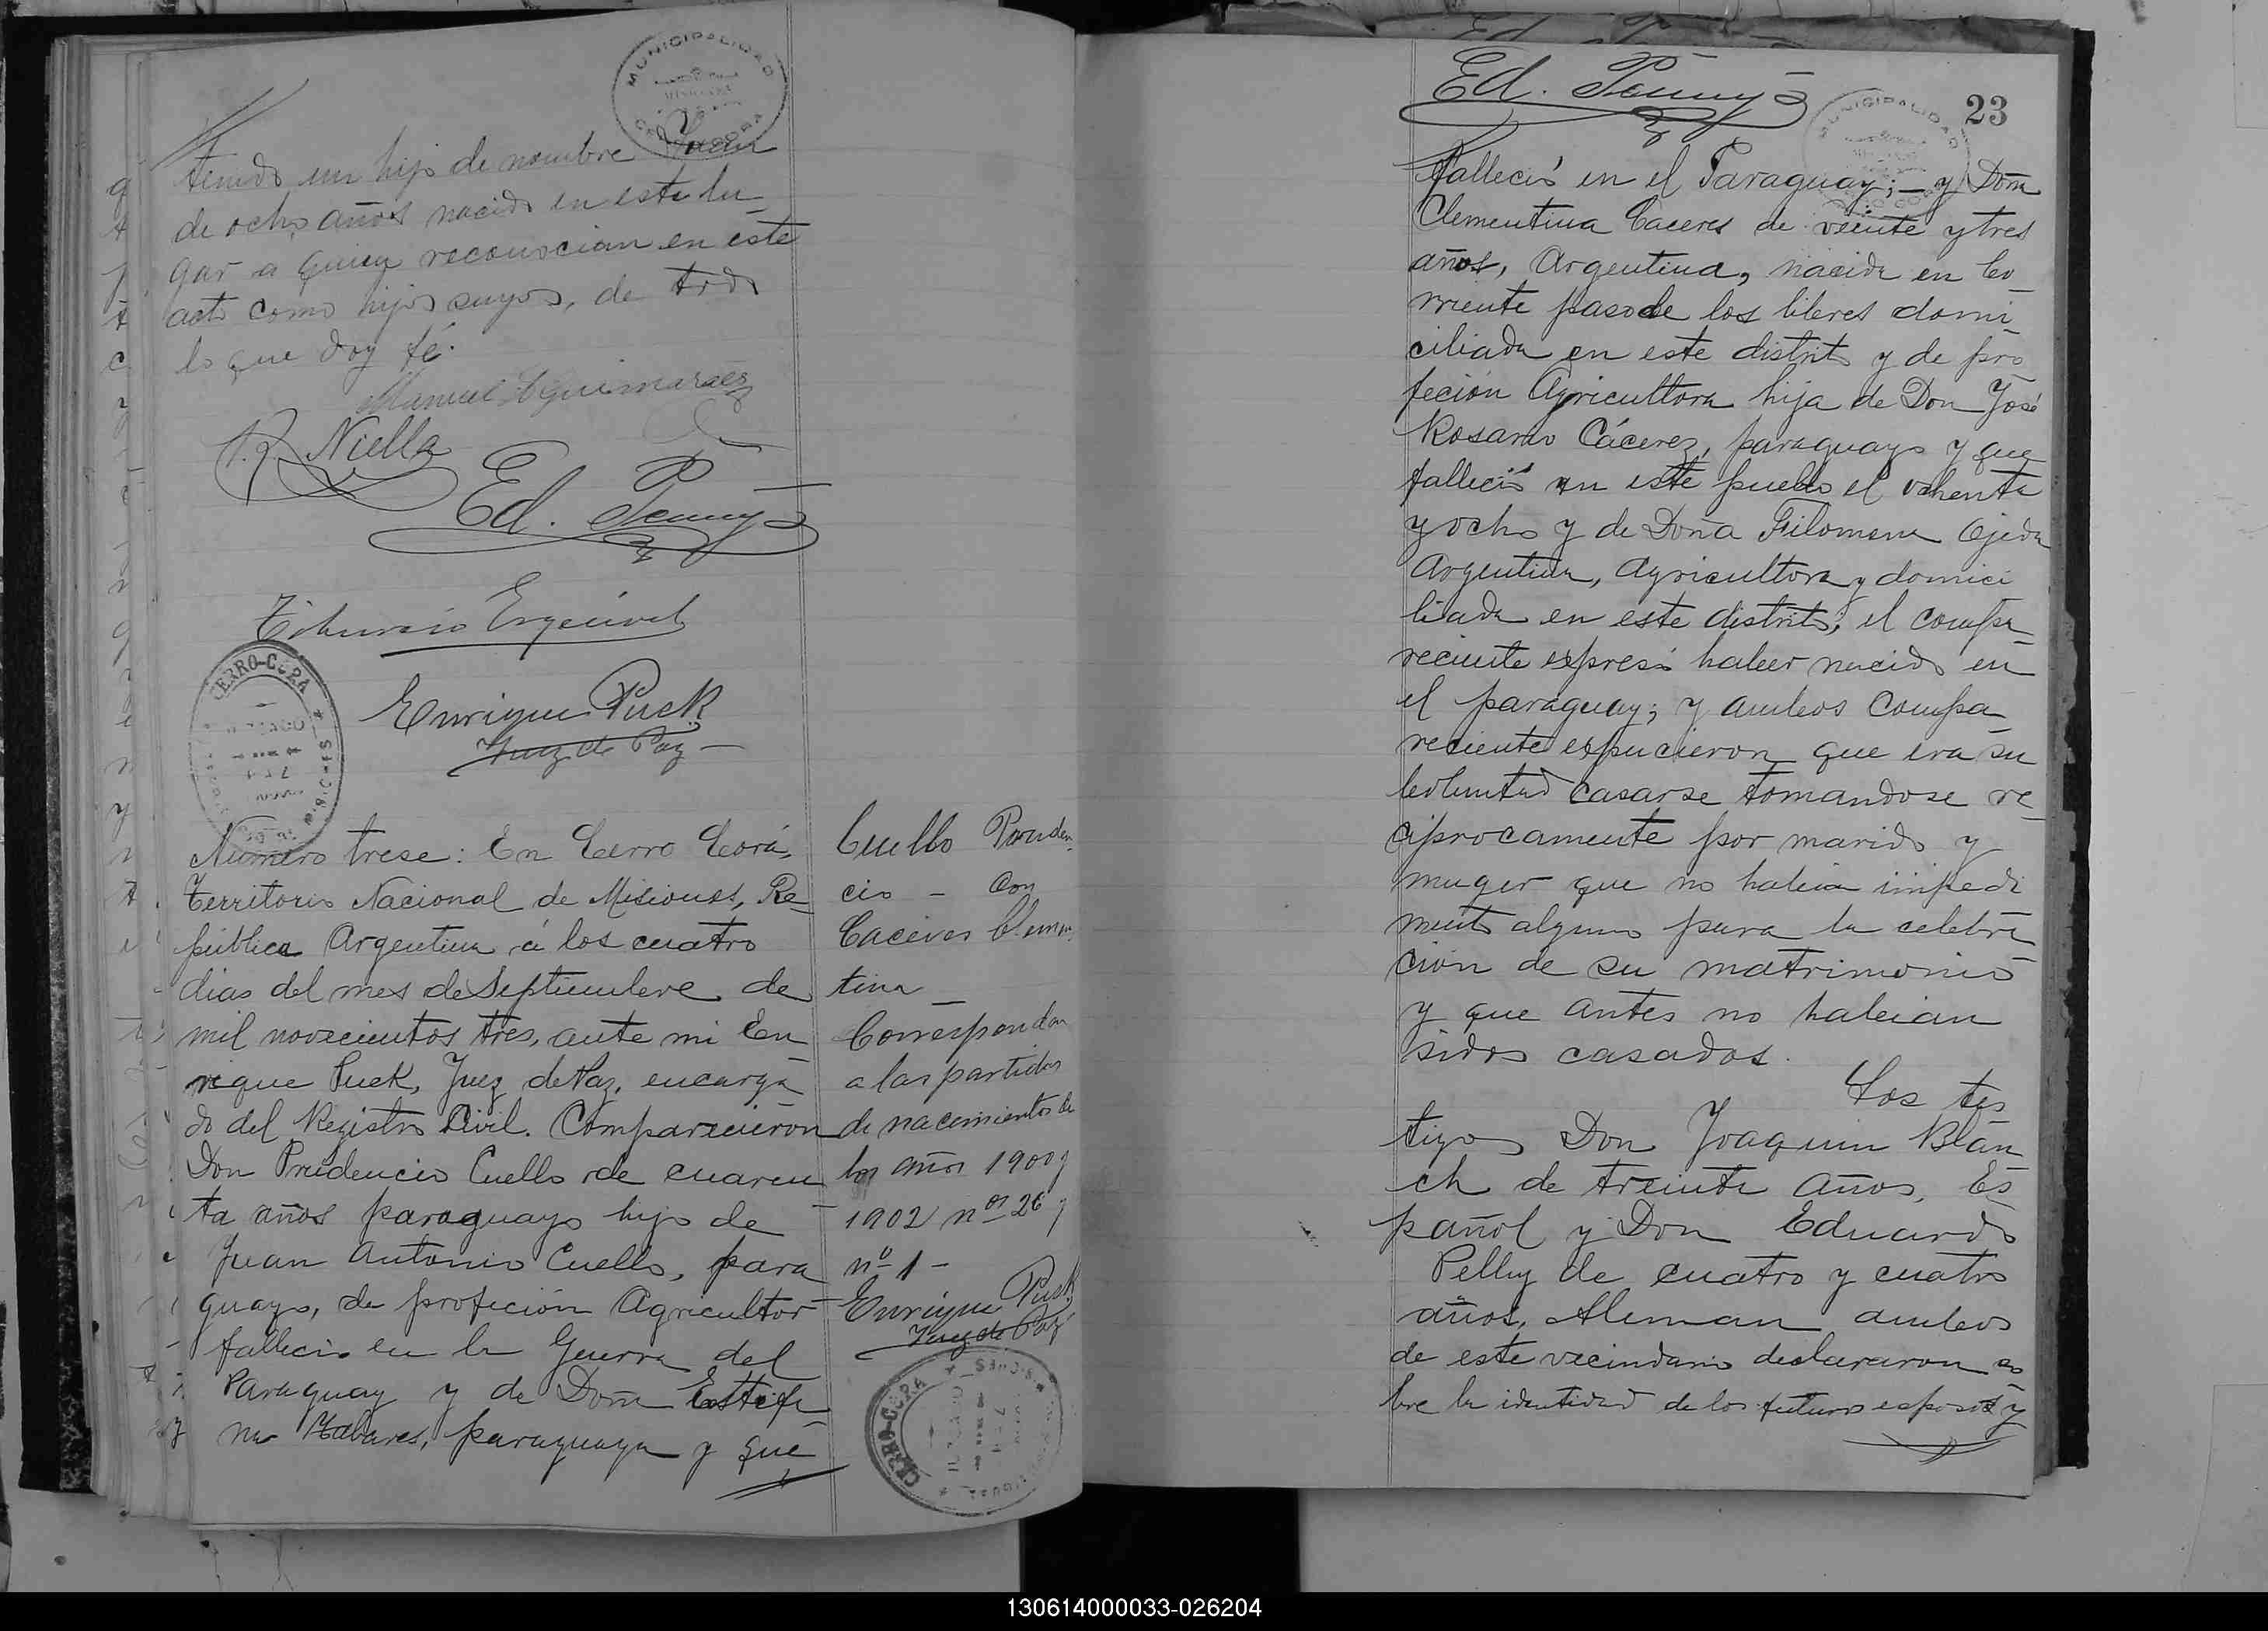 MUNICIPALIDAD
tenido un hijo de nombre Juan
de ocho años nacido en este lu_
gar a quien reconocian en este
acto como hijos suyos, de todo
lo que doy fé.
Manuel Guimaraes
R. Niella
Ed. Penny
Tiburcio Esquivel
CERRO-CORA
Enrique Puck
Juez de Paz —
Numero trese: En Cerro Corá,
Territorio Nacional de Misiones, Re_
publica Argentina á los cuatro
dias del mes de Septiembre de
mil novecientos tres, ante mi En_
rique Puck, Juez de Paz, encarga_
do del Registro Civil. Comparecieron
Don Prudencio Cuello de cuaren_
ta años paraguayo hijo de
Juan Antonio Cuello, para_
guayo, de profeción Agricultor
fallecio en la Guerra del
Paraguay y de Doña Estefa_
na Tabares, paraguaya y que
Cuello Pruden_
cio — con
Caceres Clemen_
tina —
Corresponden
a las partidas
de nacimientos de
los años 1900 y
1902 nos 26 y
nº 1 —
Enrique Puck
Juez de Paz
CERRO-CORA
Ed. Penny
23
MUNICIPALIDAD
fallecio en el Paraguay; — y Doña
Clementina Caceres de veinte y tres
años, Argentina, nacida en Co_
rriente paso de los liberes domi_
ciliada en este distrito y de pro_
feción Agricultora hija de Don José
Rosario Cácerez, paraguayo y que
fallecio en este pueblo el ochenta
y ocho y de Doña Filomena Ojeda
Argentina, Agricultora y domici
liada en este distrito; el compa_
reciente espresó haber nacido en
el paraguay; y ambos Compa_
reciente espucieron que era su
boluntad casarse tomandose re_
ciprocamente por marido y
muger que no habia impedi
mento alguno para la celebra_
ción de su matrimonio
y que antes no habian
sidos casados.
Los tes_
tigos Don Joaquin Blan_
ch de treinta años, Es_
pañol y Don Eduardo
Pelly de cuatro y cuatro
años, Aleman ambos
de este vecindario declararon so_
bre la identidad de los futuros esposos y
130614000033-026204